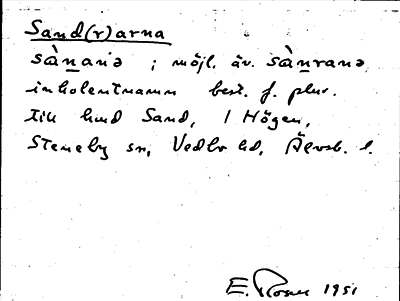 Sand(r)arna
sànanə ; möjl. äv. sànranə
inbolentnamn best. f. plur.
till hmd Sand, 1 Högen,
Steneby sn, Vedbo hd, Älvsb. l.
E. Rosen 1951